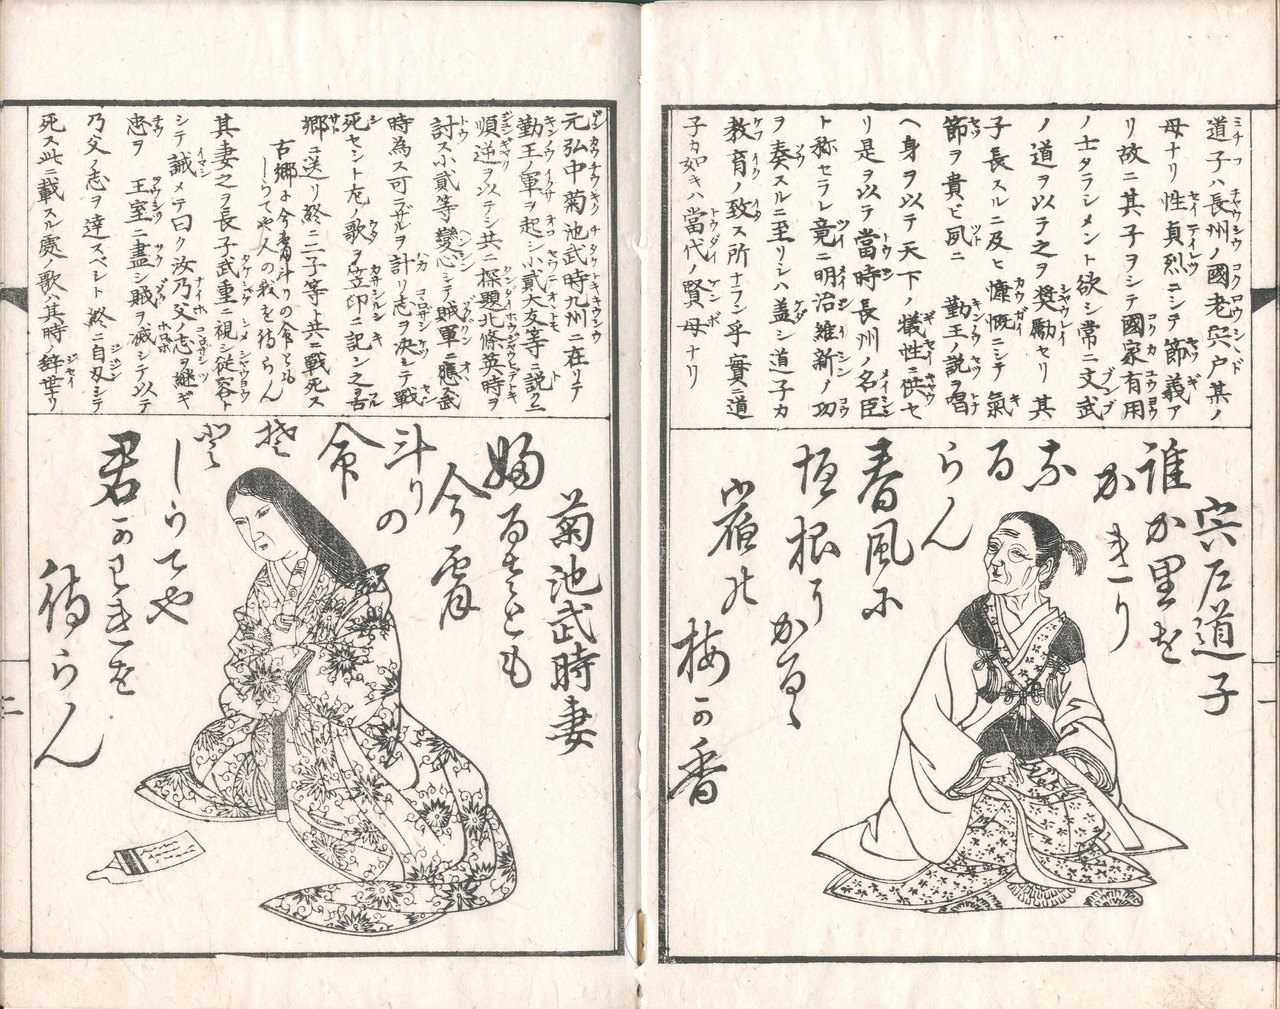 道子ハ長州ノ國老宍戸其ノ
母ナリ性貞烈ニシテ節義ア
リ故ニ其子ヲシテ國家有用
ノ士タラシメント欲シ常ニ文武
ノ道ヲ以テ之ヲ奨勵セリ其
子長スルニ及ヒ慷慨ニシテ氣
節ヲ貴ビ夙ニ勤王ノ説ヲ唱
ヘ身ヲ以テ天下ノ犠牲ニ供セ
リ是ヲ以テ當時長州ノ名臣
ト称セラレ竟ニ明治維新ノ功
ヲ奏スルニ至リシハ盖シ道子カ
教育ノ致ス所ナラン乎實ニ道
子カ如キハ當代ノ賢母ナリ
宍戸道子
誰か里を
かきり
なる
らん
春風に
垣根り
かるゝ
宿の
梅の香
元弘中菊池武時九州ニ在リテ
勤王ノ軍ヲ起シ小貳大友等ニ説クニ
順逆ヲ以テシ共ニ探題北條英時ヲ
討ス小貳等變心シテ賊軍ニ應ス武
時為ス可ラザルヲ計リ志ヲ決シテ戰
死セントシ左ノ歌ヲ笠印ニ記シ之ヲ古
郷ニ送リ終ニ二子等ト共ニ戰死ス
古郷に今宵斗りの命とも
しらてや人の我を待らん
其妻之ヲ長子武重ニ視シ従容ト
シテ誡メテ曰ク汝乃父ノ志ヲ継ギ
忠ヲ王室ニ盡シ賊ヲ滅シテ以テ
乃父ノ志ヲ達スベシト終ニ自刃シテ
死ス此ニ載スル處ノ歌ハ其時ノ辭世ナリ
菊池武時妻
故るさとも
今宵
斗りの
命
登
しらてや
君の
われを
待らん
二
一